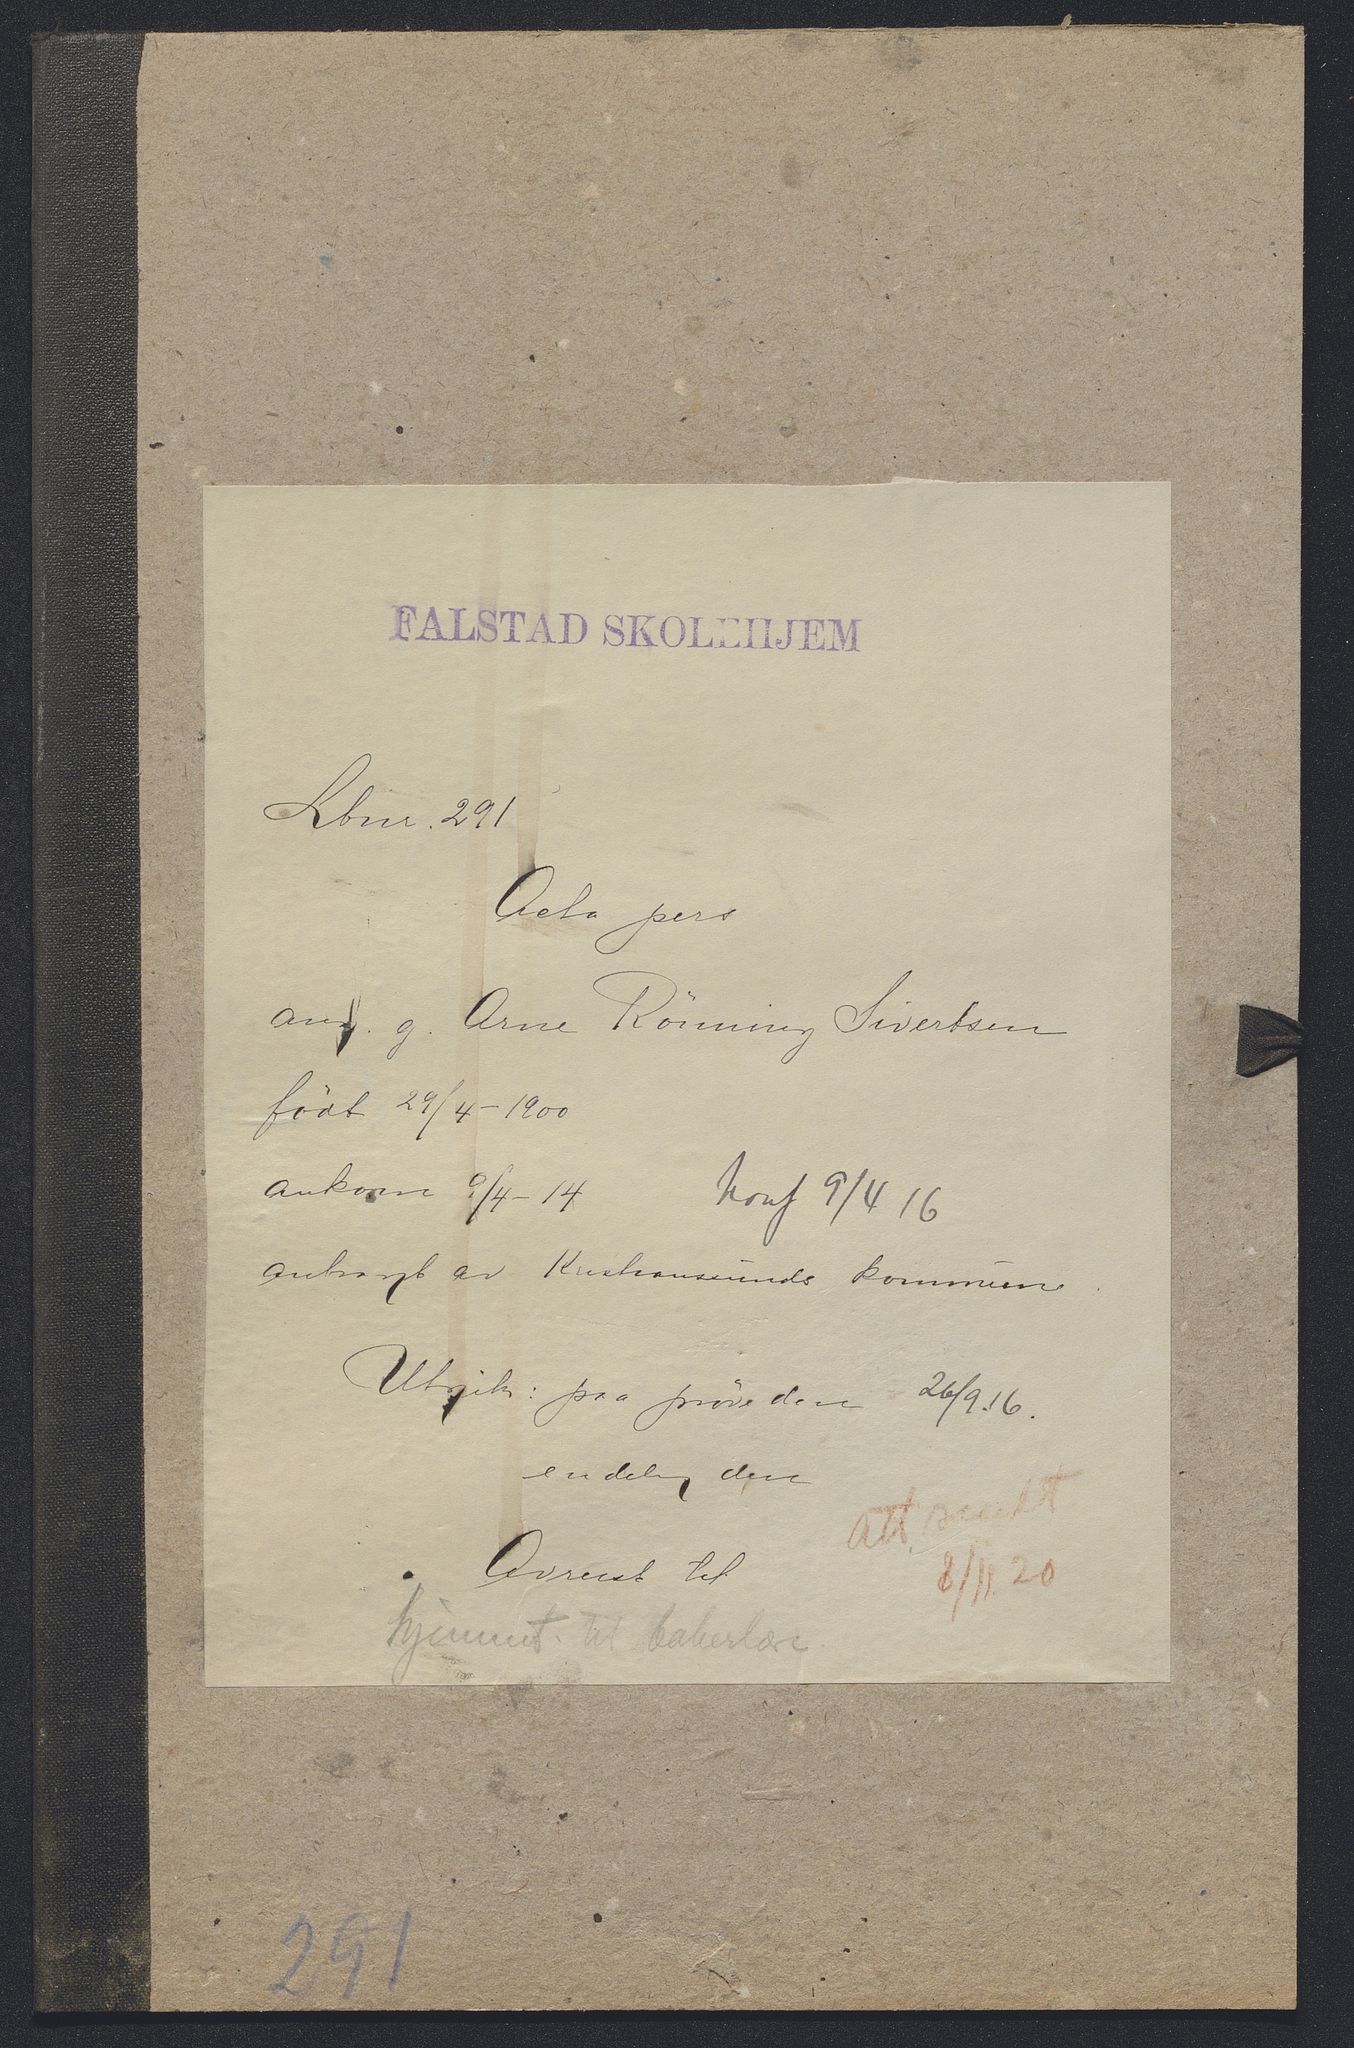 FALSTAD SKOLEHJEM
Lbnr. 291
Acta pers
ang. g. Arne Rönning Sivertsen
född 29/4-1900
ankom 9/4-14
Konf 9/4 16
anbragt av Kristiansunds kommune.
Utsik: paa pröve den 26/9.16.
endelig den
Att. sendt
8/11.20
Avreist til
hjemmet. til bakerlære.
291